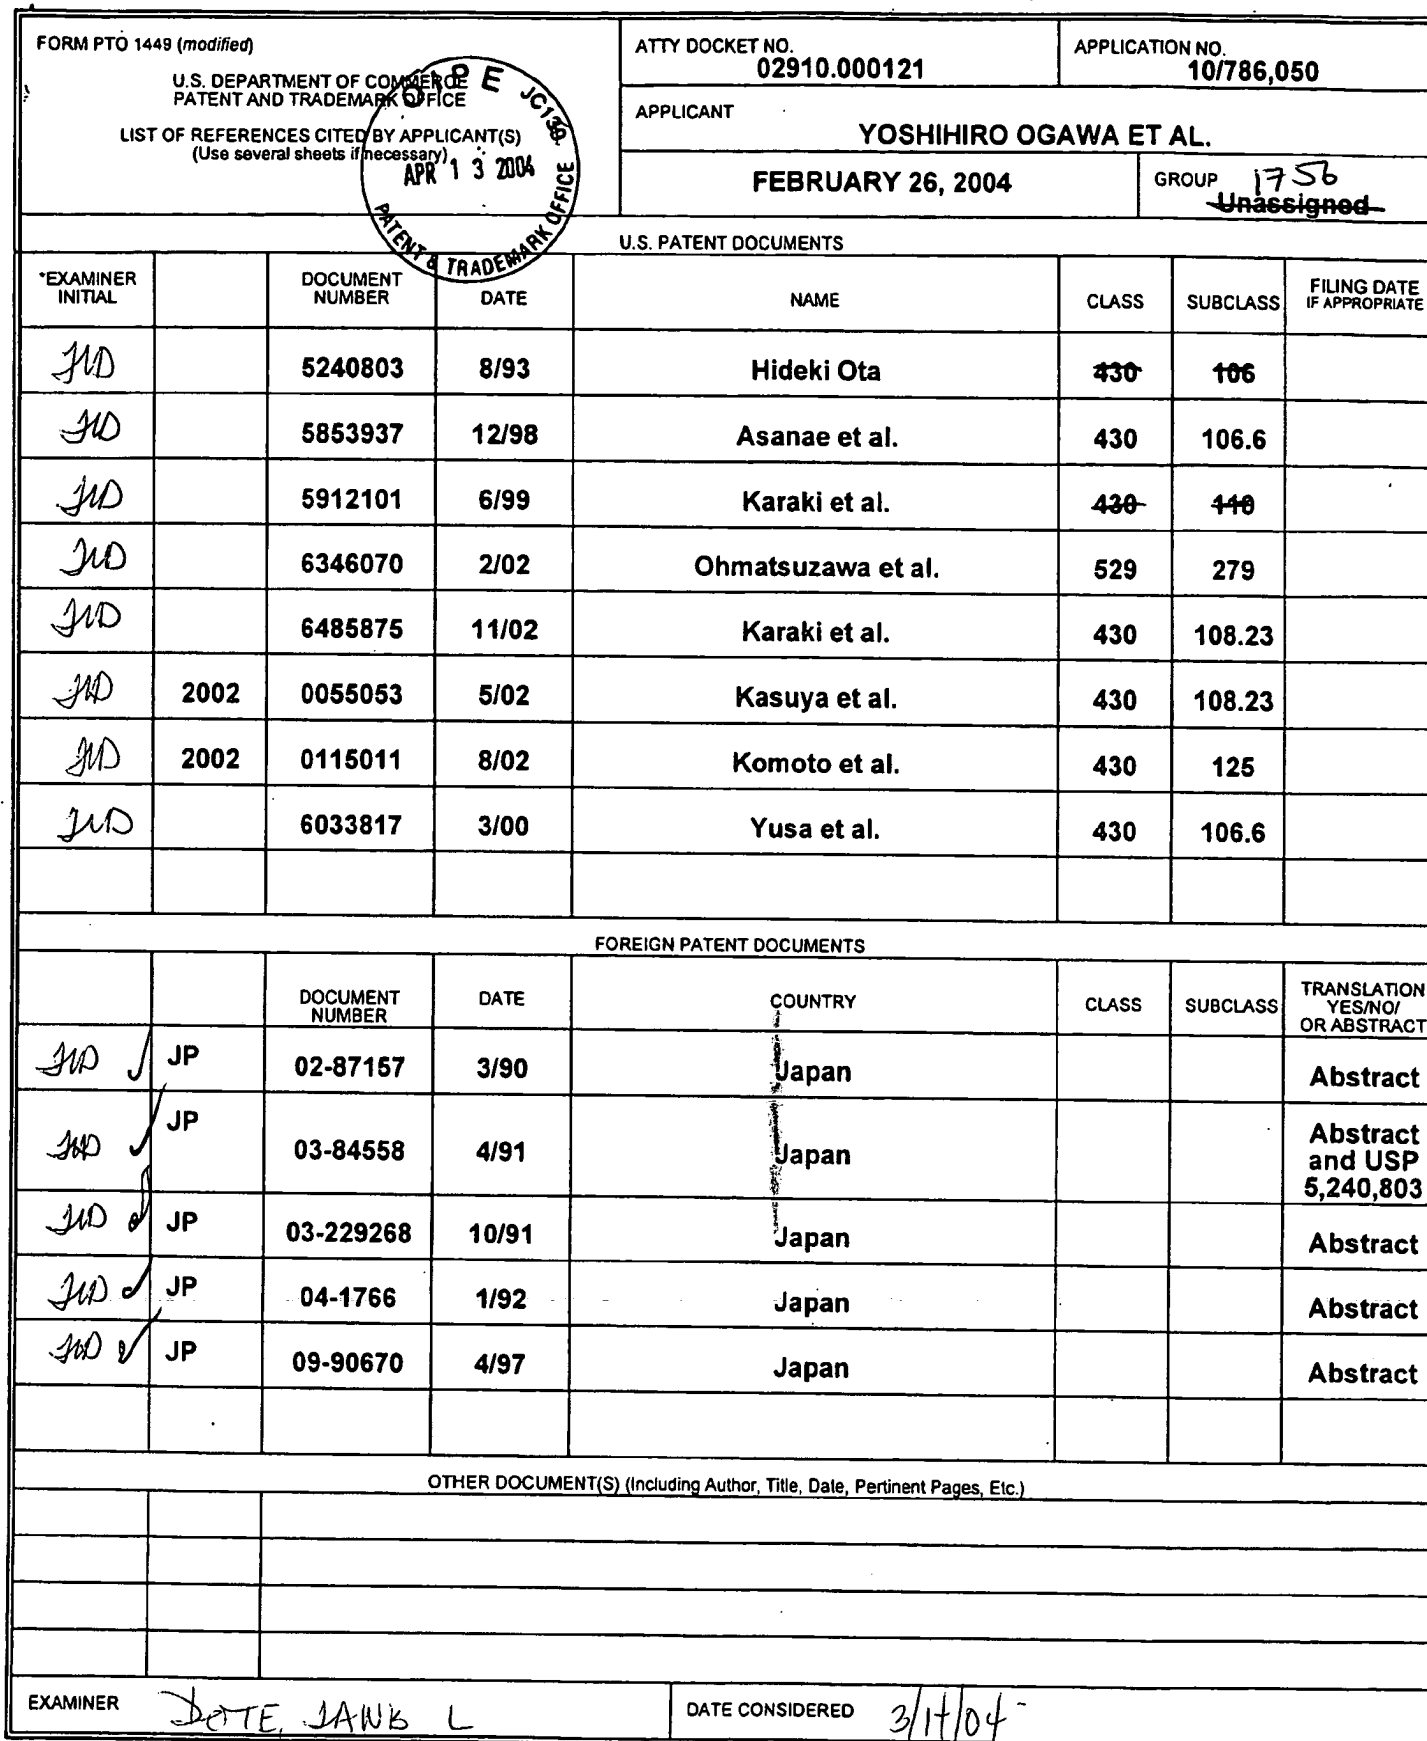 FORM PTO 1449 (modified)
U.S. DEPARTMENT OF COMMERCE
PATENT AND TRADEMARK OFFICE
LIST OF REFERENCES CITED BY APPLICANT(S)
(Use several sheets if necessary)
O I P E JC139
APR 13 2004
PATENT & TRADEMARK OFFICE
ATTY DOCKET NO.
02910.000121
APPLICATION NO.
10/786,050
APPLICANT
YOSHIHIRO OGAWA ET AL.
FEBRUARY 26, 2004
GROUP 1756
Unassigned
U.S. PATENT DOCUMENTS
*EXAMINER INITIAL DOCUMENT NUMBER DATE NAME CLASS SUBCLASS FILING DATE IF APPROPRIATE
JLD 5240803 8/93 Hideki Ota 430 106
JLD 5853937 12/98 Asanae et al. 430 106.6
JLD 5912101 6/99 Karaki et al. 430 110
JLD 6346070 2/02 Ohmatsuzawa et al. 529 279
JLD 6485875 11/02 Karaki et al. 430 108.23
JLD 2002 0055053 5/02 Kasuya et al. 430 108.23
JLD 2002 0115011 8/02 Komoto et al. 430 125
JLD 6033817 3/00 Yusa et al. 430 106.6
FOREIGN PATENT DOCUMENTS
DOCUMENT NUMBER DATE COUNTRY CLASS SUBCLASS TRANSLATION YES/NO/ OR ABSTRACT
JLD JP 02-87157 3/90 Japan Abstract
JLD JP 03-84558 4/91 Japan Abstract and USP 5,240,803
JLD JP 03-229268 10/91 Japan Abstract
JLD JP 04-1766 1/92 Japan Abstract
JLD JP 09-90670 4/97 Japan Abstract
OTHER DOCUMENT(S) (Including Author, Title, Date, Pertinent Pages, Etc.)
EXAMINER DOTE, L
DATE CONSIDERED